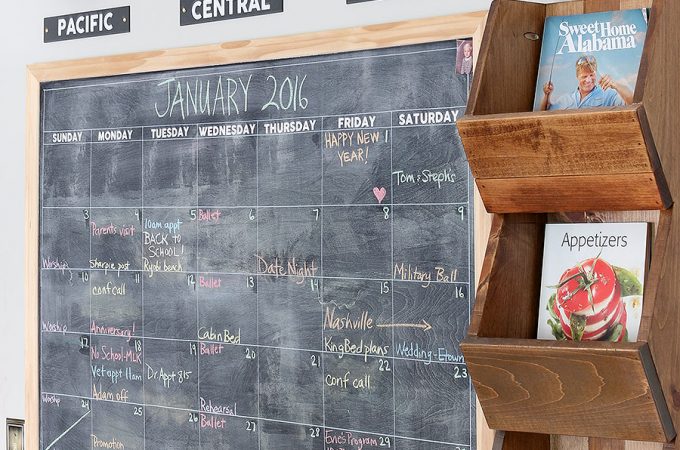 PACIFIC
CENTRAL
Sweet Home
Alabama
JANUARY 2016
SUNDAY MONDAY TUESDAY WEDNESDAY THURSDAY FRIDAY SATURDAY
HAPPY NEW
YEAR!
Tom & Steph's
3 4 5 6 7 8 9
Parents visit
10am appt
BACK TO
SCHOOL!
Ballet
Worship
Sharpie post
Ryobi beach
Date Night
Military Ball
10 11 12 13 14 15 16
conf call
Ballet
Nashville
Worship
Anniversary!
Cabin Bed
King Bed plans
Wedding-Etowah
17 18 19 20 21 22 23
No School-MLK
Vet appt 11am
Adam off
Dr. Appt 815
Ballet
conf call
Worship
Rehearsal
24 25 26 27 28 29 30
Promotion
Ballet
Evie's Program
Appetizers